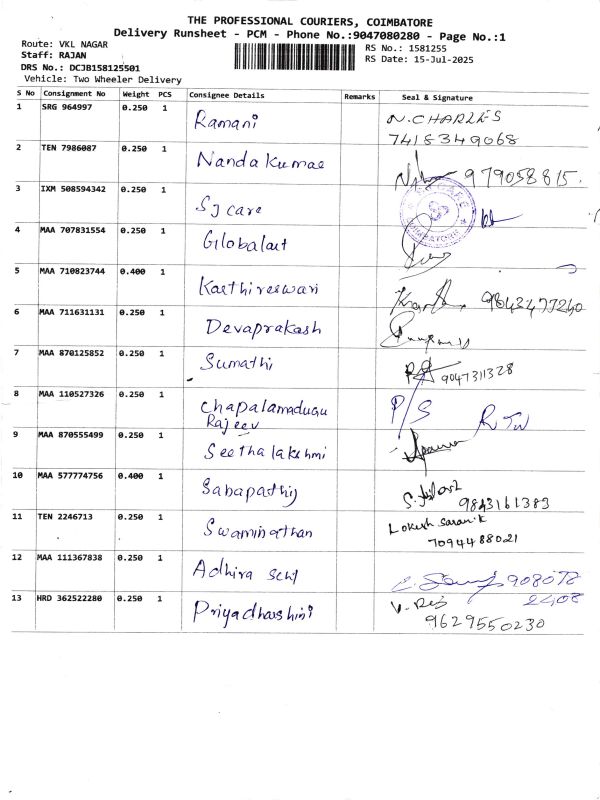 THE PROFESSIONAL COURIERS, COIMBATORE
Delivery Runsheet - PCM - Phone No.:9047080280 - Page No.:1
Route: VKL NAGAR
RS No.: 1581255
Staff: RAJAN
RS Date: 15-Jul-2025
DRS No.: DCJB158125501
Vehicle: Two Wheeler Delivery
S No Consignment No Weight PCS Consignee Details Remarks Seal & Signature
1 SRG 964997 0.250 1 Ramani N. CHARLES
7418349068
2 TEN 7986087 0.250 1 Nanda Kumar 979058815.
3 IXM 508594342 0.250 1 SJ care
4 MAA 707831554 0.250 1 Globalart
5 MAA 710823744 0.400 1 Karthireswari 9843477240
6 MAA 711631131 0.250 1 Devaprakash
7 MAA 870125852 0.250 1 Sumathi 9047311328
8 MAA 110527326 0.250 1 Chapalamadugu P/S RTN
Rajeev
9 MAA 870555499 0.250 1 Seethalakshmi
10 MAA 577774756 0.400 1 Sabapathy 9843161383
11 TEN 2246713 0.250 1 Swaminathan Lokesh saran.k
7094488021
12 MAA 111367838 0.250 1 Adhira 908078
2408
13 HRD 362522280 0.250 1 Priyadharshini
9629550230